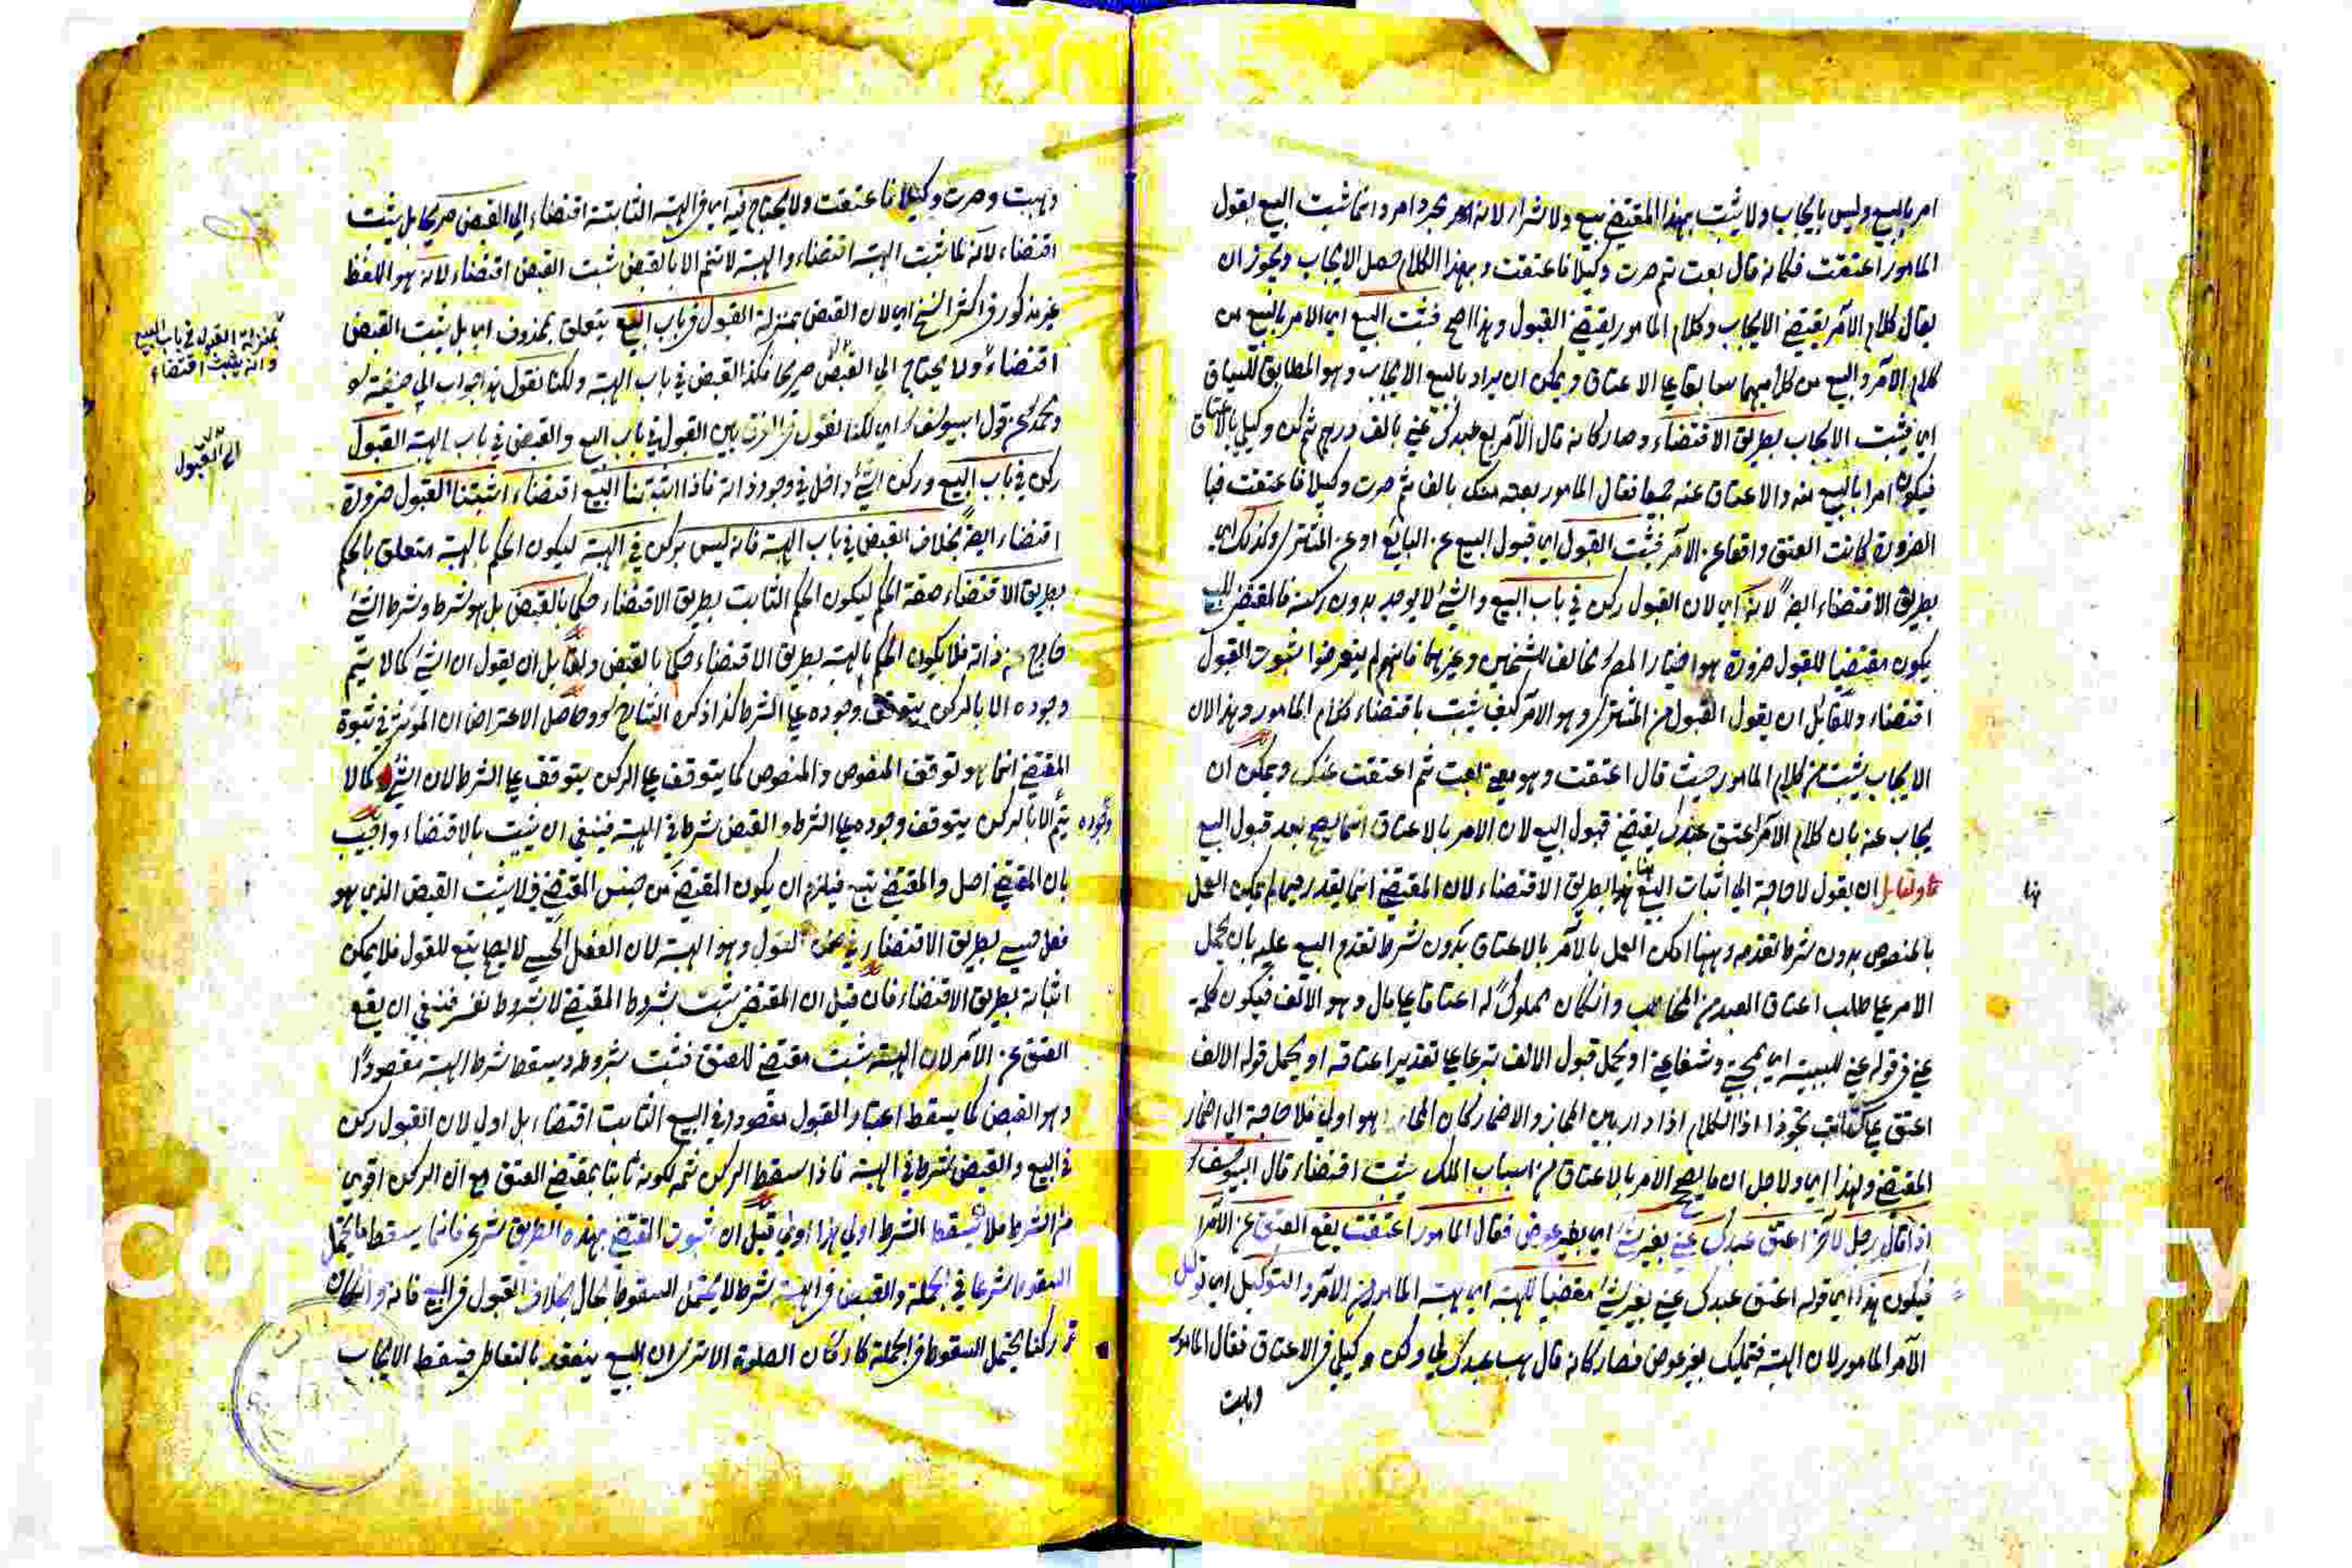 امر بالبيع وليس بايجاب ولا يثبت بهذا المقتضى بيع ولا شراء لانه امر مجرد امر وانما يثبت البيع بقول
المامور اعتقت فكانه قال بعت ثم صرت وكيلا فاعتقت وبهذا الكلام حصل الايجاب ويجوز ان
يقال كلام الآمر يقتضي الايجاب وكلام المامور يقتضي القبول وهذا اصح فيثبت البيع اي الامر بالبيع من
كلام الآمر والبيع من كلاميهما سابقا على الاعتاق ويمكن ان يراد بالبيع الايجاب وهو المطابق للسياق
اي يثبت الايجاب بطريق الاقتضاء وصار كانه قال الآمر بع عبدك عني بالف درهم ثم كن وكيلي بالاعتاق
فيكون امرا بالبيع منه والاعتاق عنه جميعا فقال المامور بعته منك بالف ثم صرت وكيلا فاعتقت
الضرورة كانت العتق واقعا عن الآمر فيثبت القبول اي قبول البيع عن البائع او عن المشتري وكذلك اي
بطريق الاقتضاء ايضا لانه اي لان القبول ركن في باب البيع والشيء لا يوجد بدون ركنه فالمقتضي للبيع
يكون مقتضيا للقبول ضرورة هو اختيار المص مخالف للشيخين وغيرهما فانهم لم يتعرضوا لثبوت القبول
اقتضاء ولقائل ان يقول القبول من المشتري وهو الآمر كيف يثبت باقتضاء كلام المامور وهذا لان
الايجاب يثبت من كلام المامور حيث قال اعتقت وهو معنى بعت ثم اعتقت عنك ويمكن ان
يجاب عنه بان كلام الآمر اعتق عبدك يقتضي قبول البيع لان الامر بالاعتاق انما يصح بعد قبول البيع
ولقائل ان يقول لا حاجة الى اثبات البيع هنا بطريق الاقتضاء لان المقتضى انما يقدر حيث لم يمكن العمل
بالمنصوص بدون شرط تقدمه وههنا امكن العمل بالامر بالاعتاق بدون شرط تقدم البيع عليه بان يحمل
الامر على طلب اعتاق العبد من المخاطب وان كان مملوكا له اعتاقا على مال وهو الالف فيكون كلمة
عني في قوله عني للسببية اي بمحبتي وشفاعتي او يحمل قبول الالف تبرعا على تقدير اعتاقه او يحمل قوله الالف
اعتق على تجوزا اذ الكلام اذا دار بين المجاز والاضمار كان المجاز هو اولى فلا حاجة الى اضمار
المقتضى ولهذا اي ولاجل ان ما يصح الامر بالاعتاق من اسباب الملك يثبت اقتضاء قال ابو يوسف
اذا قال رجل لآخر اعتق عبدك عني بغير شيء اي بغير عوض فقال المامور اعتقت يقع العتق عن الآمر
فيكون هذا اي قوله اعتق عبدك عني بغير شيء مقتضيا للهبة اي هبة المامور من الآمر والتوكيل اي توكيل
الآمر المامور لان الهبة تمليك بغير عوض فصار كانه قال هب عبدك لي وكن وكيلي في الاعتاق فقال المامور
وهبت
هنا
وهبت وصرت وكيلا فاعتقت ولا يحتاج فيه اي في الهبة الثابتة اقتضاء الى القبض صريحا بل يثبت
اقتضاء لانه لما ثبت الهبة اقتضاء والهبة لا تتم الا بالقبض ثبت القبض اقتضاء لانه هو اللفظ
غير مذكور في اكثر النسخ اي لان القبض بمنزلة القبول في باب البيع يتعلق بمحذوف اي بل يثبت القبض
اقتضاء ولا يحتاج الى القبض صريحا فكذا القبض في باب الهبة ولكنا نقول هذا جواب ابي حنيفة
ومحمد عن قول ابي يوسف اي لكنا نقول في الفرق بين القبول في باب البيع والقبض في باب الهبة القبول
ركن في باب البيع وركن الشيء داخل في وجود ذاته فاذا اثبتنا البيع اقتضاء اثبتنا القبول ضرورة
اقتضاء ايضا بخلاف القبض في باب الهبة فانه ليس بركن في الهبة ليكون الحكم بالهبة متعلق بالحكم
بطريق الاقتضاء صفة الحكم ليكون الحكم الثابت بطريق الاقتضاء حكما بالقبض بل هو شرط وشرط الشيء
خارج عن ذاته فلا يكون الحكم بالهبة بطريق الاقتضاء حكما بالقبض ولقائل ان يقول ان الشيء كما لا يتم
وجوده الا بالركن يتوقف وجوده على الشرط كذا ذكره الشارح وحاصل الاعتراض ان المؤثر في ثبوت
المقتضى انما هو توقف المنصوص والمنصوص كما يتوقف على الركن يتوقف على الشرط لان الشيء كما لا
يتم وجوده الا بالركن يتوقف وجوده على الشرط والقبض شرط في الهبة فينبغي ان يثبت بالاقتضاء واجيب
بان المقتضي اصل والمقتضى تبع فيلزم ان يكون المقتضى من جنس المقتضي فلا يثبت القبض الذي هو
فعل حسي بطريق الاقتضاء في ضمن القول وهو الهبة لان الفعل الحسي لا يصلح تبعا للقول فلا يمكن
اثباته بطريق الاقتضاء فان قيل ان المقتضى يثبت بشروط المقتضي لا بشروط نفسه فينبغي ان يقع
العتق عن الآمر لان الهبة يثبت مقتضى للعتق فيثبت بشروطه ويسقط شرط الهبة مقصودا
وهو القبض كما يسقط اعتبار القبول مقصودا في البيع الثابت اقتضاء بل اولى لان القبول ركن
في البيع والقبض شرط في الهبة فاذا سقط الركن ثمه لكونه ثابتا بمقتضى العتق مع ان الركن اقوى
من الشرط فلان يسقط الشرط اولى هذا اولى قيل ان ثبوت المقتضى بهذه الطريق شرعي فانما يسقط ما يحتمل
السقوط شرعا في الجملة والقبض في الهبة شرط لا يحتمل السقوط بحال بخلاف القبول في البيع فانه وان كان
ركنا يحتمل السقوط في الجملة كاركان الصلوة الا ترى ان البيع ينعقد بالتعاطي فيسقط الايجاب
بمنزلة القبول في باب البيع
وانه يثبت اقتضاء
الى القبول